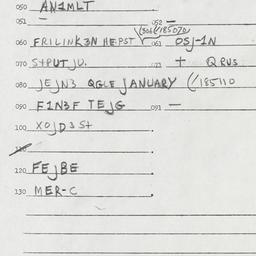 050 AN1MLT
051 — 052 —
(306/185070
060 FRILINK3N HEPST Y 061 OSJ-1N
070 S+PUTJU. 073 + QRUS
080 JEJN3 QGLE JANUARY (/185110
090 F1N3F TEJG 091 —
100 XOJD3S+
110
120 FEJBE
130 MER-C